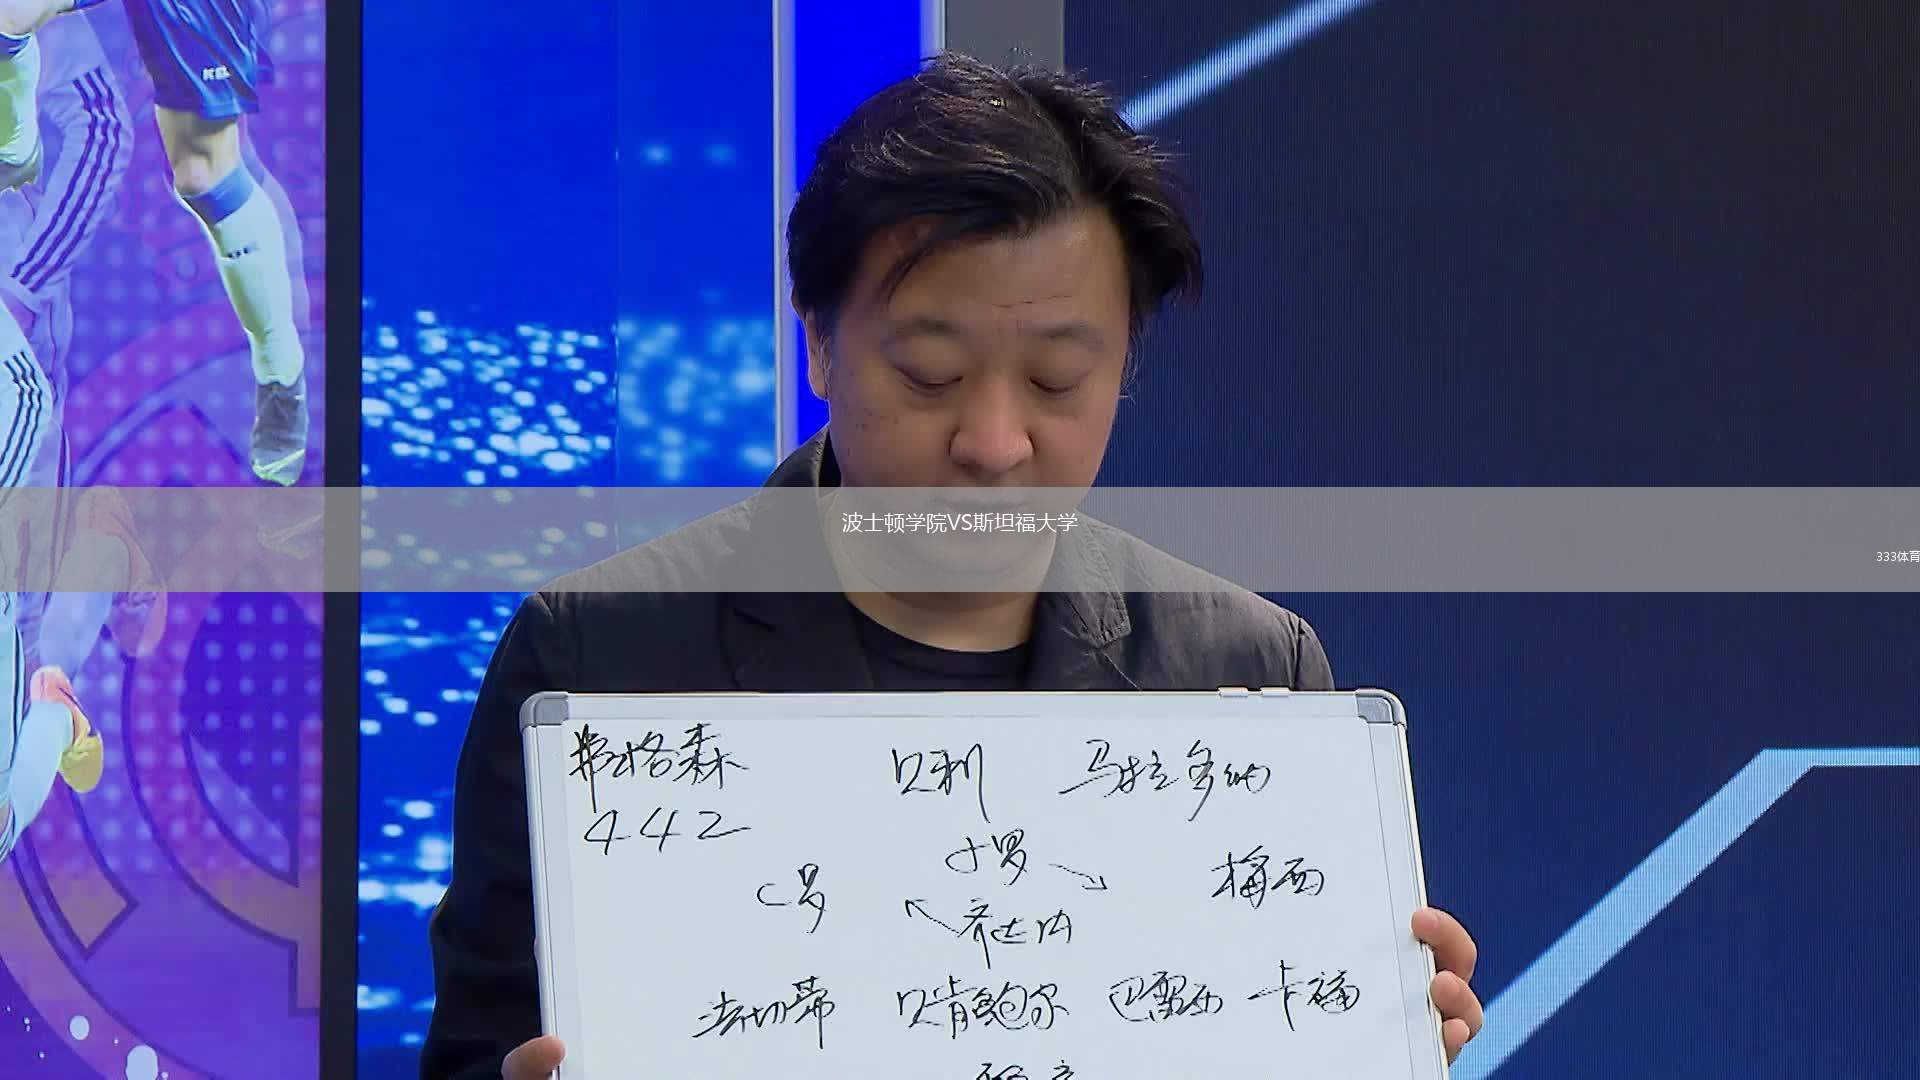 波士顿学院VS斯坦福大学
333体育
弗格森 贝利 马拉多纳
442
小罗
C罗 梅西
齐达内
法切蒂 贝肯鲍尔 巴雷西 卡福